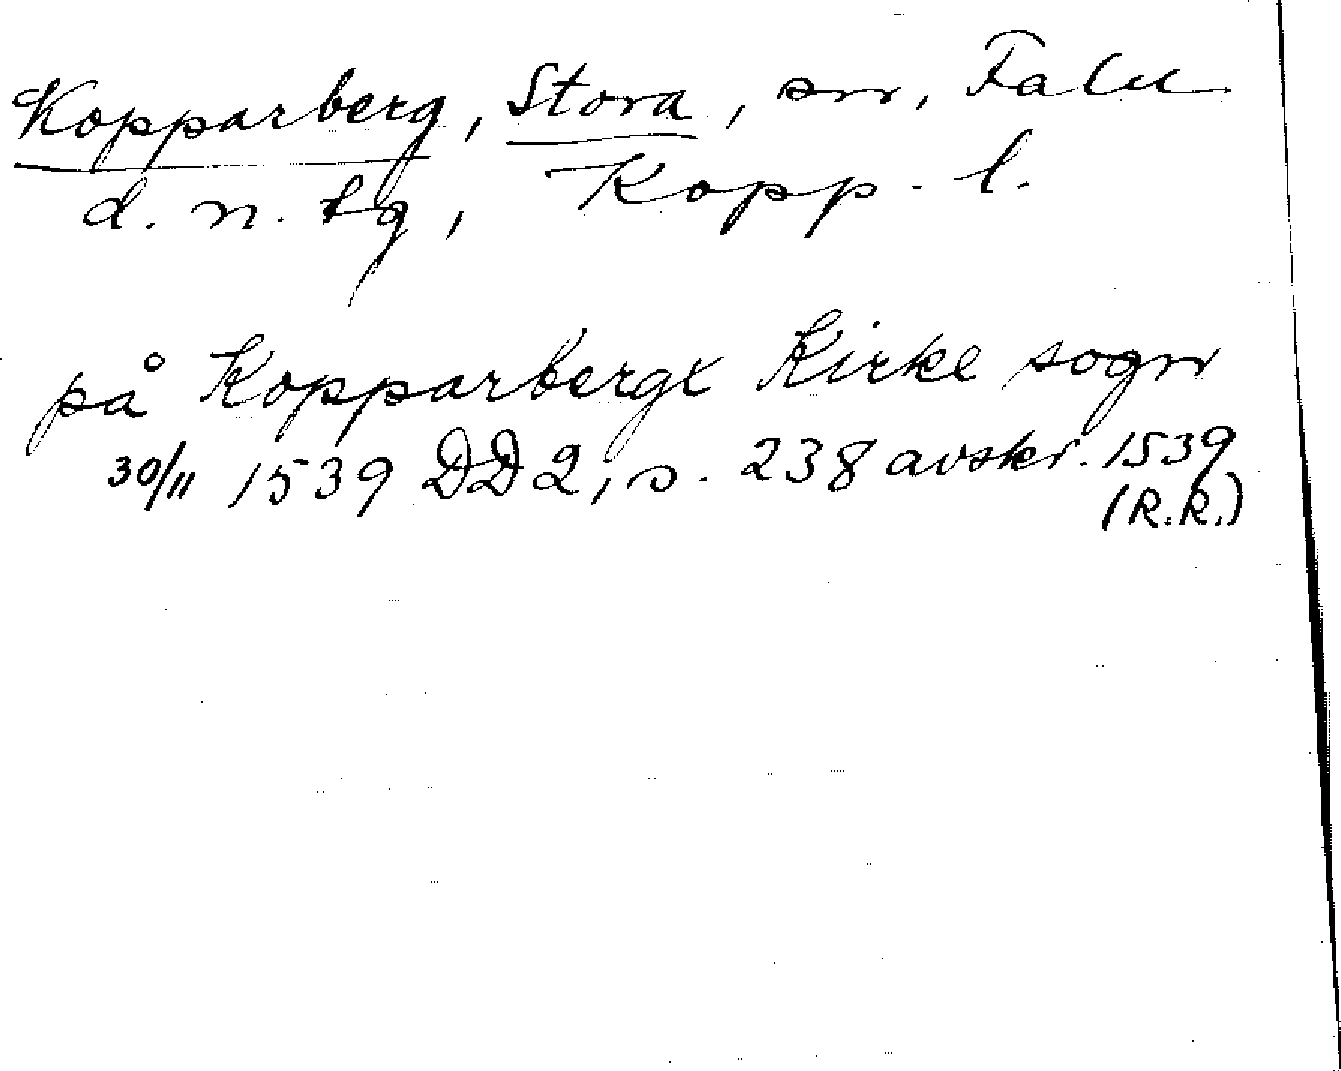 Kopparberg, Stora, sn, Falu
d. n. tg, Kopp. l.
på Kopparbergx Kirke sogn
30/11 1539 DD2, s. 238 avskr. 1539
(R.R.)